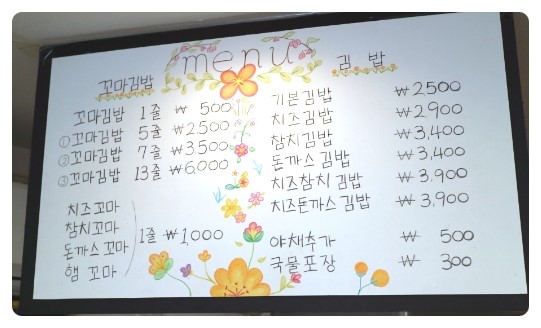 menu
꼬마김밥
꼬마김밥 1줄 ₩ 500
① 꼬마김밥 5줄 ₩2500
② 꼬마김밥 7줄 ₩3500
③ 꼬마김밥 13줄 ₩6,000
치즈꼬마
참치꼬마
돈까스꼬마
햄 꼬마
1줄 ₩1,000
김 밥
기본김밥 ₩2500
치즈김밥 ₩2900
참치김밥 ₩3,400
돈까스김밥 ₩3,400
치즈참치김밥 ₩3,900
치즈돈까스김밥 ₩3,900
야채추가 ₩ 500
국물포장 ₩ 300